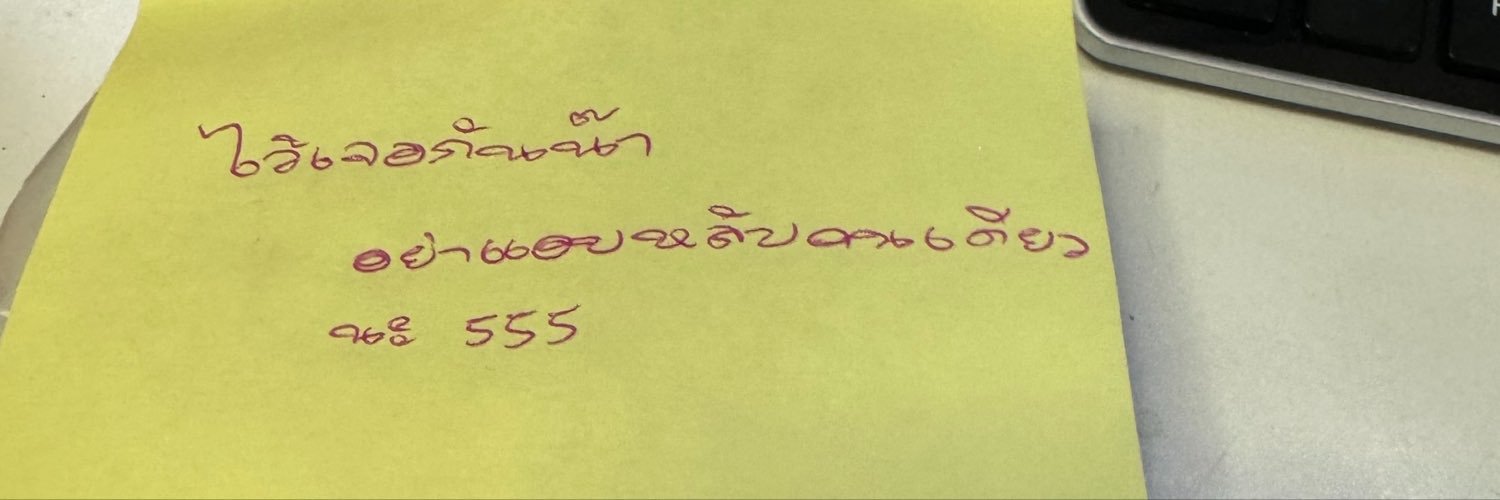 ไว้เจอกันน๊า
อย่าแอบหลับคนเดียว
นะ 555